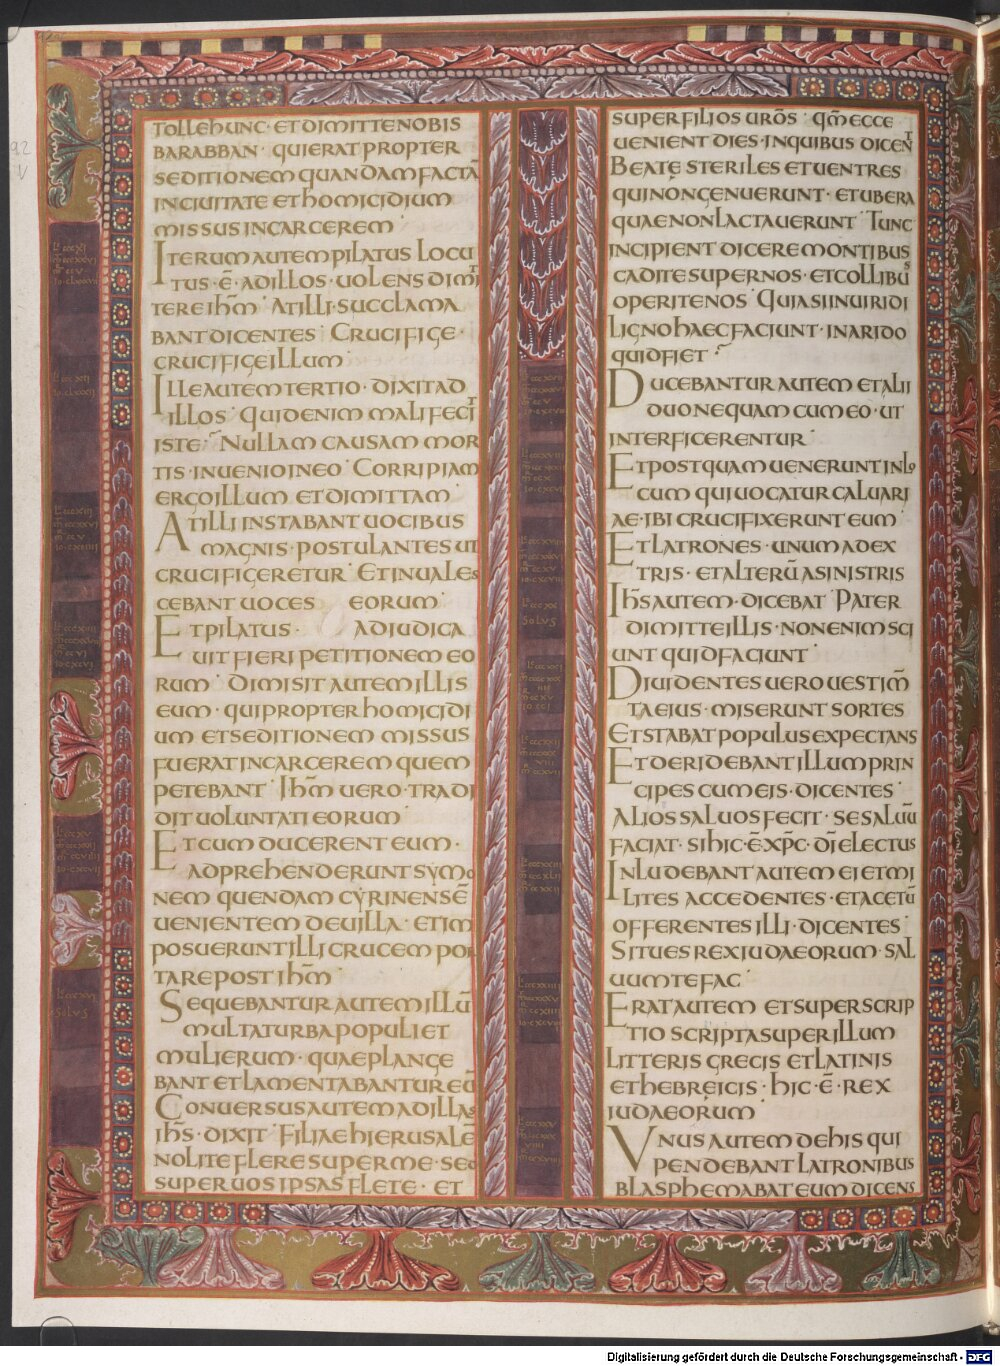 TOLLE HUNC · ET DIMITTE NOBIS
BARABBAN · QUI ERAT PROPTER
SEDITIONEM QUANDAM FACTĀ
IN CIUITATE ET HOMICIDIUM
MISSUS IN CARCEREM
ITERUM AUTEM PILATUS LOCU
TUS · Ē · AD ILLOS · UOLENS DIMIT
TERE IHM̄ · AT ILLI · SUCCLAMA
BANT DICENTES · CRUCIFIGE ·
CRUCIFIGE ILLUM ·
ILLE AUTEM TERTIO · DIXIT AD
ILLOS · QUID ENIM MALI FECIT
ISTE · NULLAM CAUSAM MOR
TIS · INUENIO IN EO · CORRIPIAM
ERGO ILLUM ET DIMITTAM ·
AT ILLI INSTABANT UOCIBUS
MAGNIS · POSTULANTES UT
CRUCIFIGERETUR · ET INUALES
CEBANT UOCES EORUM ·
ET PILATUS · ADIUDICA
UIT FIERI PETITIONEM EO
RUM · DIMISIT AUTEM ILLIS
EUM · QUI PROPTER HOMICIDI
UM ET SEDITIONEM MISSUS
FUERAT IN CARCEREM QUEM
PETEBANT · IHM̄ UERO · TRADI
DIT UOLUNTATI EORUM
ET CUM DUCERENT EUM ·
ADPREHENDERUNT SYMO
NEM QUENDAM CYRINENSĒ
UENIENTEM DE UILLA · ET IM
POSUERUNT ILLI CRUCEM POR
TARE POST IHM̄ ·
SEQUEBANTUR AUTEM ILLŪ
MULTA TURBA POPULI ET
MULIERUM · QUAE PLANGE
BANT ET LAMENTABANTUR EŪ
CONUERSUS AUTEM AD ILLAS
IHS̄ · DIXIT · FILIAE HIERUSALĒ
NOLITE FLERE SUPER ME · SED
SUPER UOS IPSAS FLETE · ET
SUPER FILIOS UR̄OS · QM̄ ECCE
UENIENT DIES · IN QUIBUS DICENT
BEATE STERILES ET UENTRES
QUI NON GENUERUNT · ET UBERA
QUAE NON LACTAUERUNT · TUNC
INCIPIENT DICERE MONTIBUS
CADITE SUPER NOS · ET COLLIBUS
OPERITE NOS · QUIA SI IN UIRIDI
LIGNO HAEC FACIUNT · IN ARIDO
QUID FIET ·
DUCEBANTUR AUTEM ET ALII
DUO NEQUAM CUM EO · UT
INTERFICERENTUR ·
ET POSTQUAM UENERUNT IN LO
CUM QUI UOCATUR CALUARI
AE · IBI CRUCIFIXERUNT EUM
ET LATRONES · UNUM A DEX
TRIS · ET ALTERŪ A SINISTRIS
IHS̄ AUTEM · DICEBAT · PATER
DIMITTE ILLIS · NON ENIM SCI
UNT QUID FACIUNT ·
DIUIDENTES UERO UESTIM̄
TA EIUS · MISERUNT SORTES
ET STABAT POPULUS EXPECTANS
ET DERIDEBANT ILLUM PRIN
CIPES CUM EIS · DICENTES ·
ALIOS SALUOS FECIT · SE SALUŪ
FACIAT · SI HIC · Ē · XP̄C · DĪ ELECTUS
INLUDEBANT AUTEM EI ET MI
LITES ACCEDENTES · ET ACETŪ
OFFERENTES ILLI · DICENTES ·
SI TU ES REX IUDAEORUM · SAL
UUM TE FAC ·
ERAT AUTEM ET SUPERSCRIP
TIO SCRIPTA SUPER ILLUM
LITTERIS GRECIS ET LATINIS
ET HEBREICIS · HIC · Ē · REX
IUDAEORUM ·
UNUS AUTEM DE HIS QUI
PENDEBANT LATRONIBUS
BLASPHEMABAT EUM DICENS
SOLVS
SOLVS
Digitalisierung gefördert durch die Deutsche Forschungsgemeinschaft - DFG